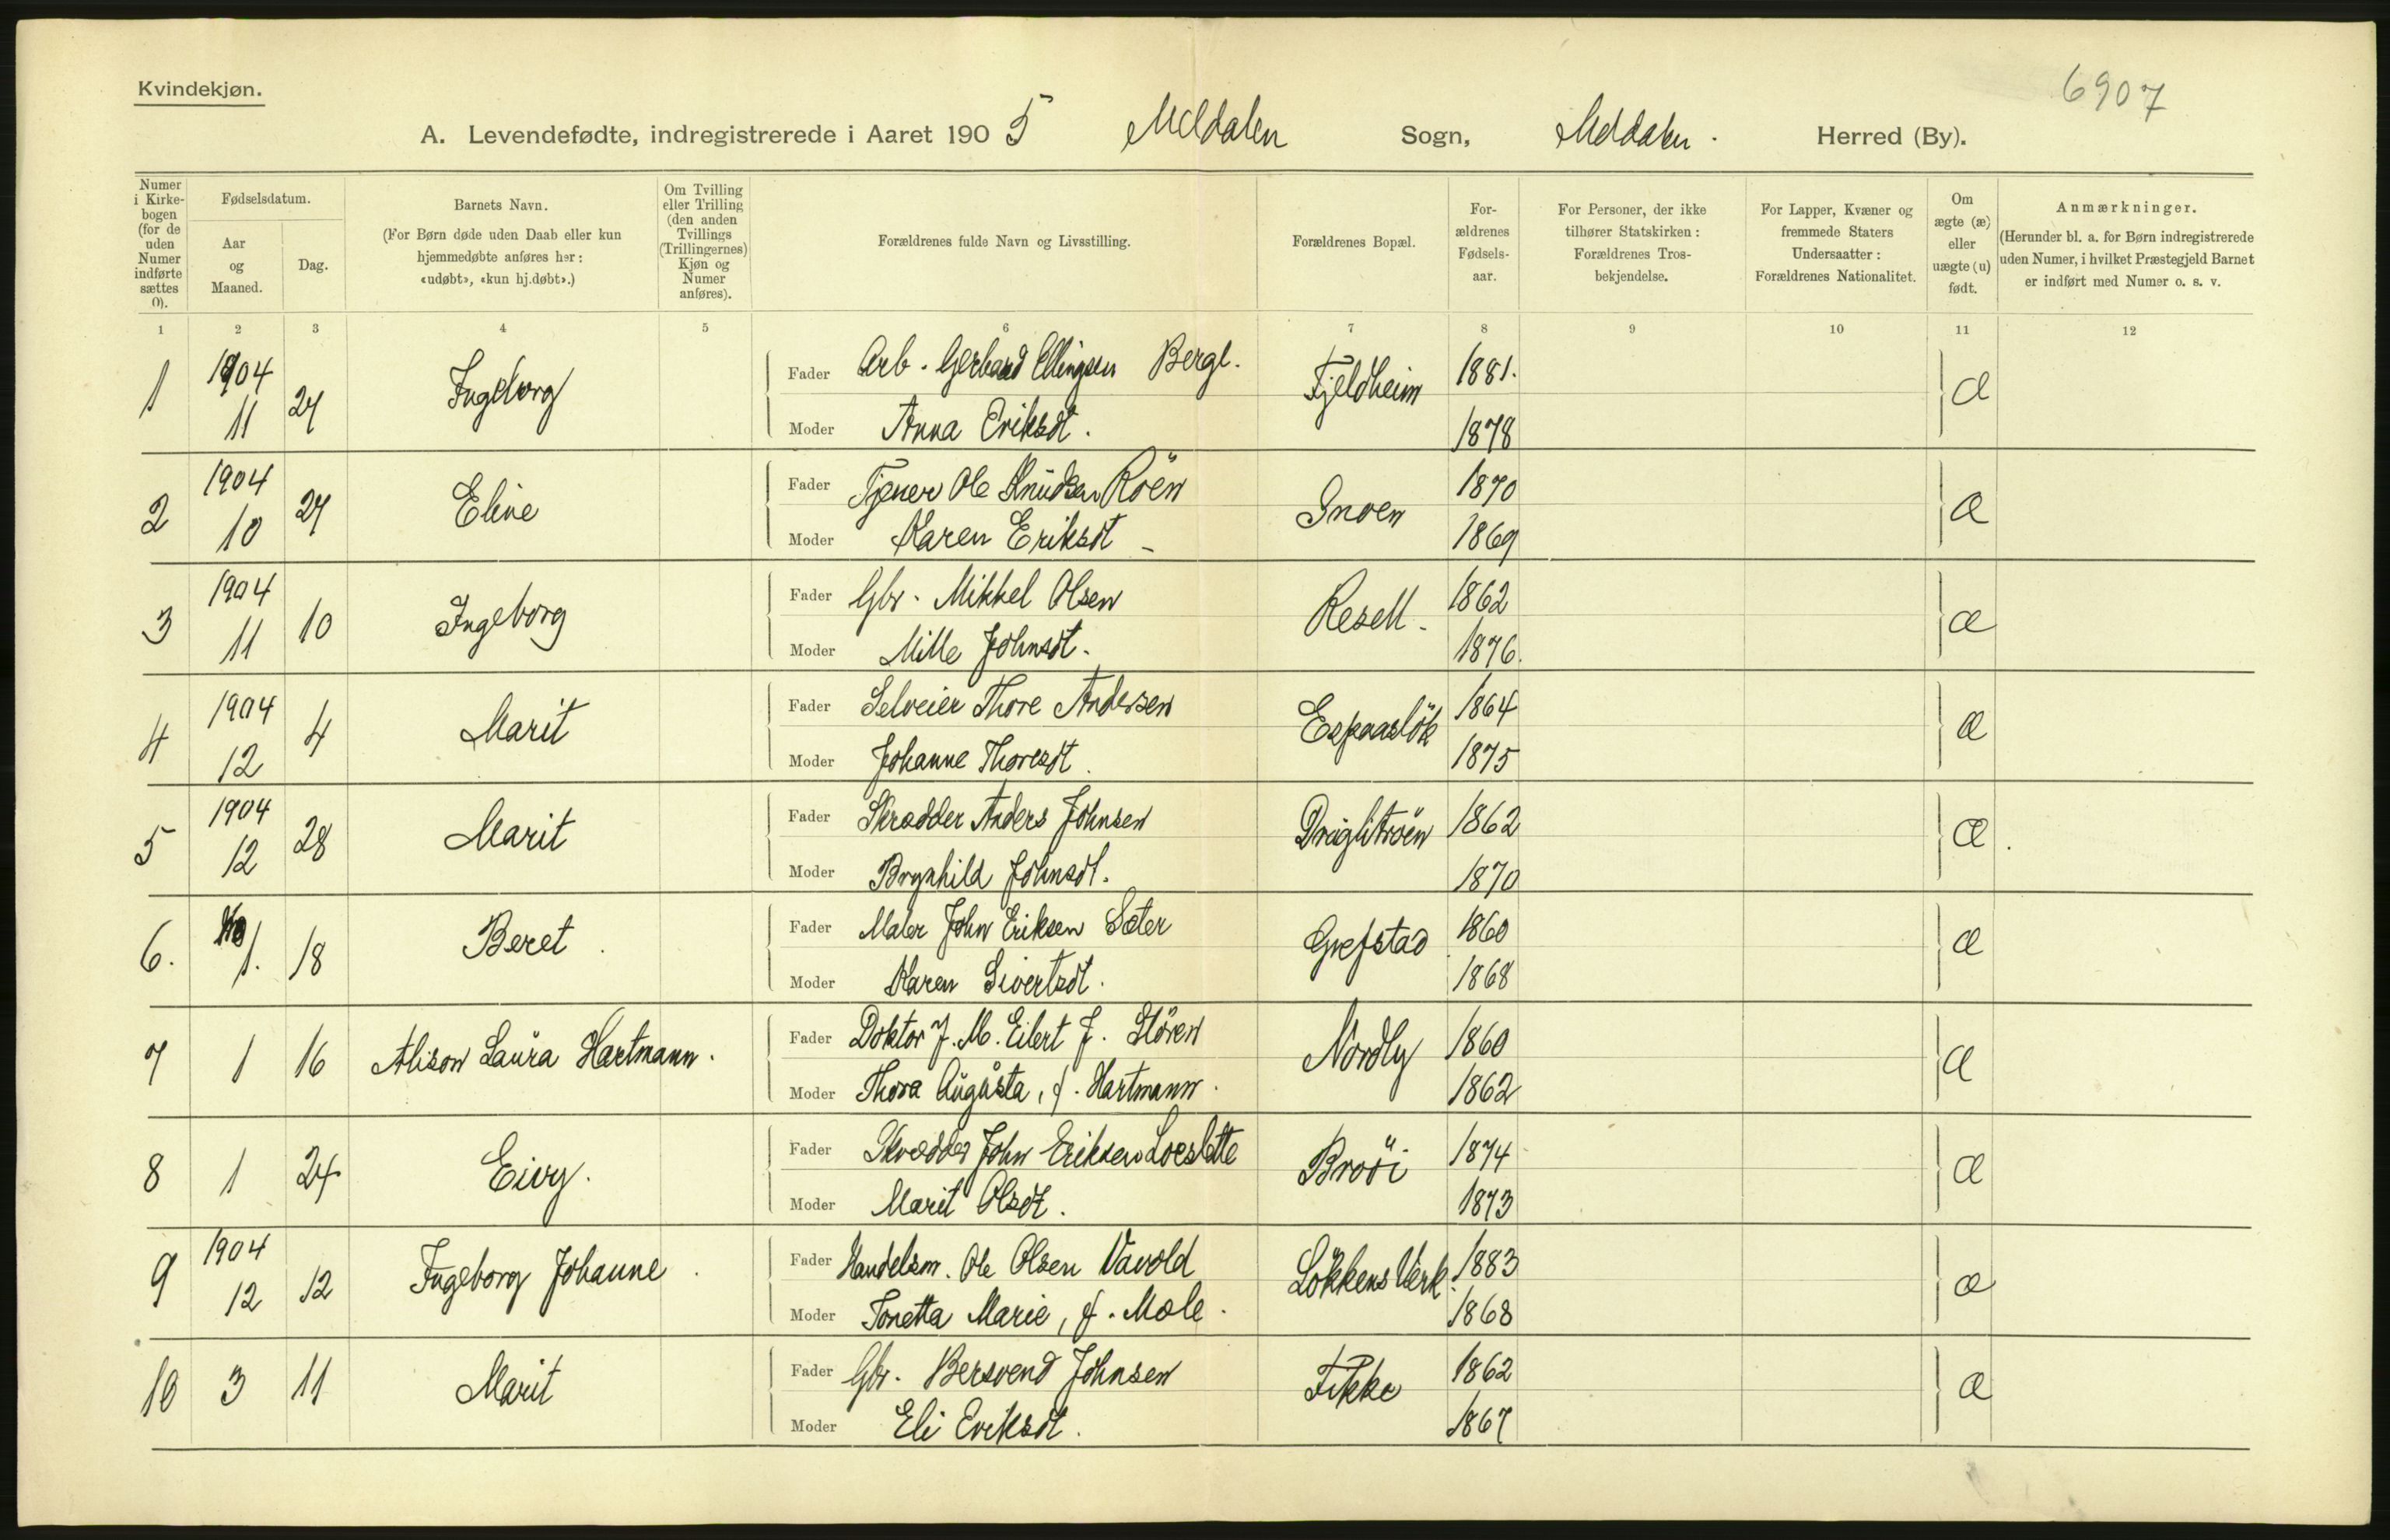 Kvindekjøn.
6907
A. Levendefødte, indregistrerede i Aaret 1905 Meldalen Sogn, Meldalen. Herred (By).
Numer i Kirkebogen (for de uden Numer indførte sættes 0).
Fødselsdatum.
Aar og Maaned.
Dag.
Barnets Navn.
(For Børn døde uden Daab eller kun hjemmedøbte anføres her: «udøbt», «kun hj.døbt».)
Om Tvilling eller Trilling (den anden Tvillings (Trillingernes) Kjøn og Numer anføres).
Forældrenes fulde Navn og Livsstilling.
Forældrenes Bopæl.
For-ældrenes Fødsels-aar.
For Personer, der ikke tilhører Statskirken: Forældrenes Tros-bekjendelse.
For Lapper, Kvæner og fremmede Staters Undersaatter: Forældrenes Nationalitet.
Om ægte (æ) eller uægte (u) født.
Anmærkninger.
(Herunder bl. a. for Børn indregistrerede uden Numer, i hvilket Præstegjeld Barnet er indført med Numer o. s. v.
1 2 3 4 5 6 7 8 9 10 11 12
1 1904 11 27 Ingeborg Fader Arb. Gerhard Ellingsen Bergl. Fjeldheim 1881. æ
Moder Anna Eriksdt. 1878
2 1904 10 27 Eline Fader Tjener Ole Knudsen Röen Snoen 1870 æ
Moder Karen Eriksdt 1869
3 1904 11 10 Ingeborg Fader Gbr. Mikkel Olsen Resell 1862 æ
Moder Mille Johnsdt. 1876.
4 1904 12 4 Marit Fader Selveier Thore Andersen 1864 æ
Moder Johanne Thoresdt. 1875
5 1904 12 28 Marit Fader Skrædder Anders Johnsen 1862 æ.
Moder Brynhild Johnsdt. 1870
6. 1. 18 Beret. Fader Maler John Eriksen Sæter Grefstad 1860 æ
Moder Karen Sivertsdt. 1868
7 1 16 Alison Laura Hartmann. Fader Doktor J. M. Eilert J. Stören Nordly 1860 æ
Moder Thora Augusta, f. Hartmann. 1862
8 1 24 Eivy. Fader Skrædder John Eriksen Loeslette Broöi 1874 æ
Moder Marit Olsdt. 1873
9 1904 12 12 Ingeborg Johanne. Fader Handelsm. Ole Olsen Vavold Lökkens Værk. 1883 æ
Moder Tonetta Marie, f. Mæle. 1868
10 3 11 Marit Fader Gbr. Bersvend Johnsen Fikke 1862 æ
Moder Eli Eriksdt. 1867